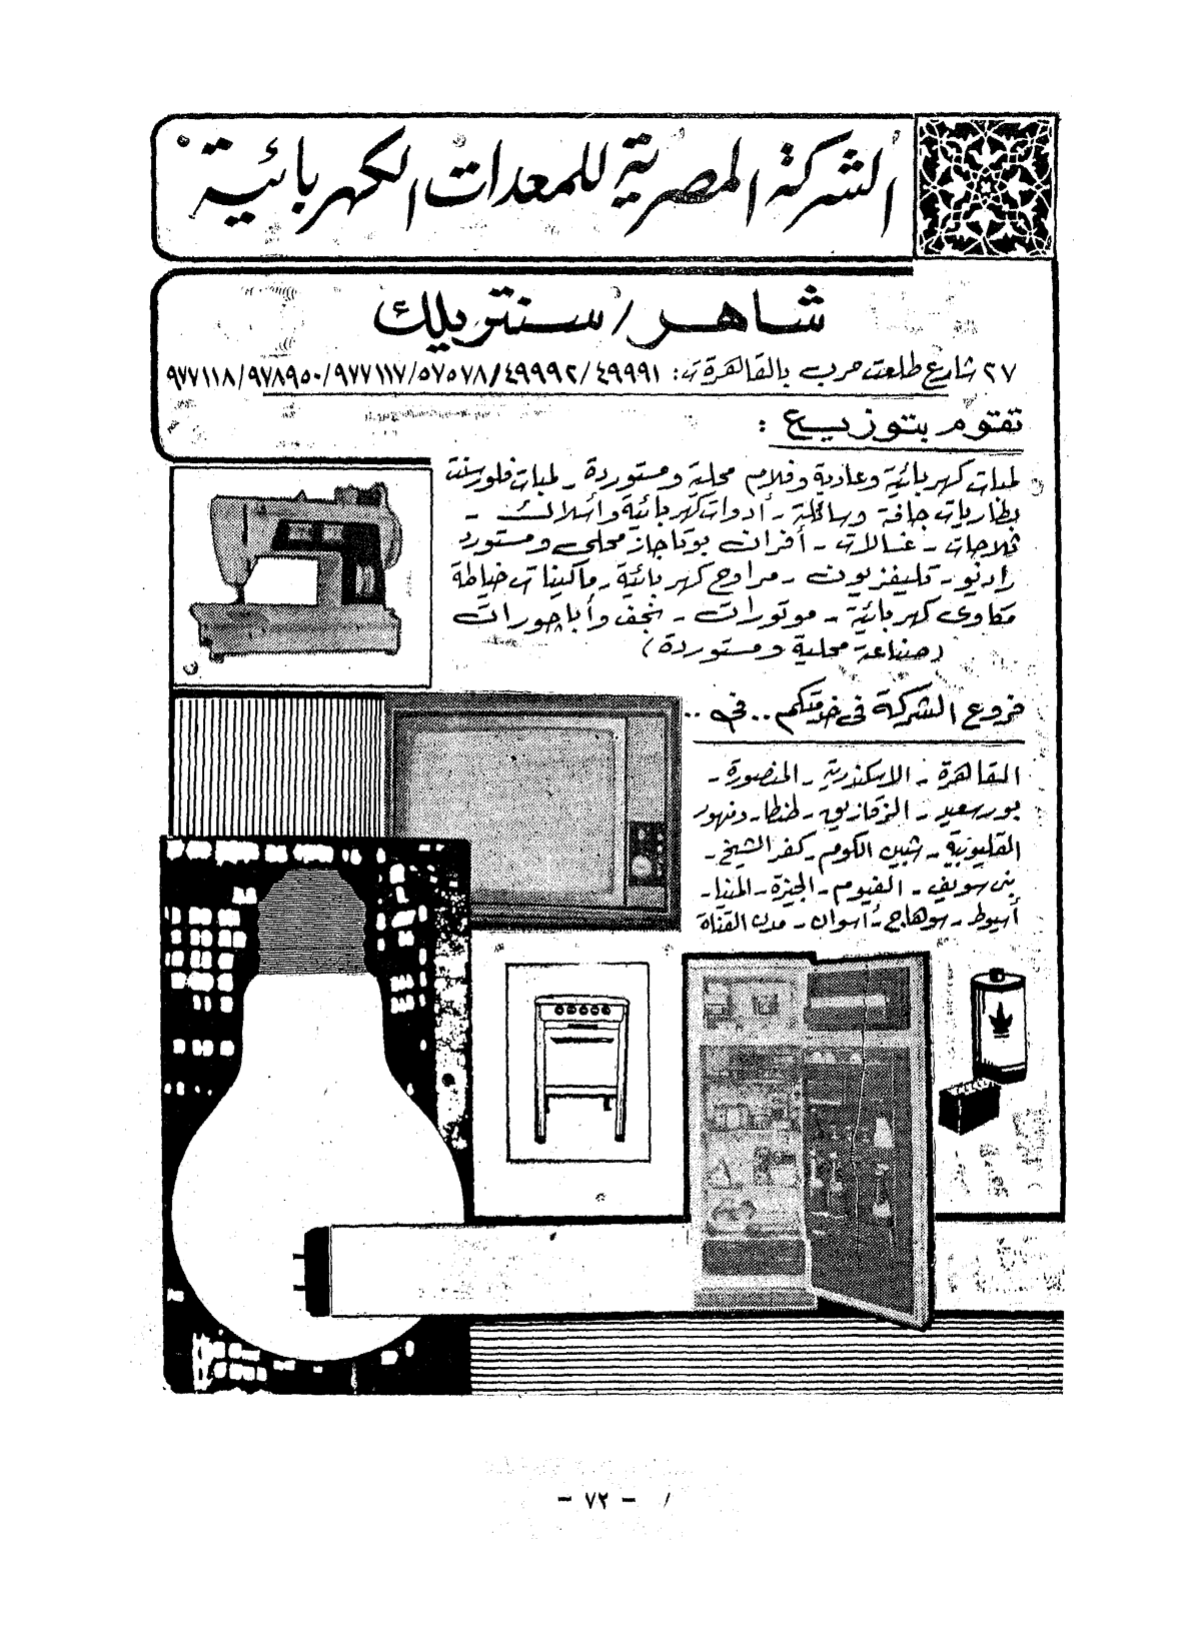 الشركة المصرية للمعدات الكهربائية
شاهر / سنتريلك
٢٧ شارع طلعت حرب بالقاهرة ت: ٤٩٩٩١ / ٤٩٩٩٢ / ٥٧٥٧٨ / ٩٧٧١١٧ / ٩٧٨٩٥٠ / ٩٧٧١١٨
تقوم بتوزيع :
لمبات كهربائية وعادية وفلام محلية ومستوردة - لمبات فلورسنت
بطاريات جافة وسائلة - أدوات كهربائية وأسلاك -
ثلاجات - غسالات - أفران بوتاجاز محلى ومستورد
راديو - تليفزيون - مراوح كهربائية - ماكينات خياطة
مكاوى كهربائية - موتورات - نجف وأباجورات
(صناعة محلية ومستوردة)
فروع الشركة فى خدمتكم .. فى ..
القاهرة - الاسكندرية - المنصورة -
بورسعيد - الزقازيق - طنطا - دمنهور
القليوبية - شبين الكوم - كفر الشيخ -
بنى سويف - الفيوم - الجيزة - المنيا -
أسيوط - سوهاج - أسوان - مدن القناة
- ٧٢ -